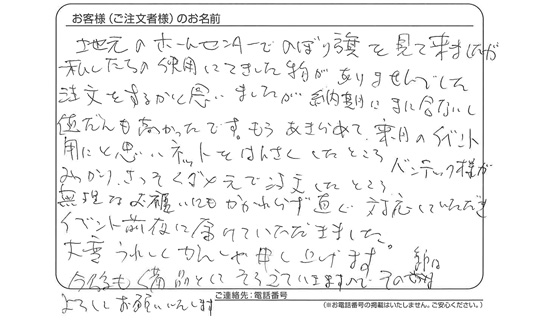 お客様（ご注文者様）のお名前
地元のホームセンターでのぼり旗を見て来ましたが
私したちの使用にてきした物がありませんでした
注文をするかと思いましたが納期にまに合ないし
値だんも高かったです。もうあきらめて、来月のイベント
用にと思いネットをけんさくしたところ バンテック様が
みつかり、さっそくダメ元で注文したところ
無理なお願いにもかかわらず直ぐ対応していただき
イベント前夜に届けていただきました。
大変うれしくかんしゃ申し上げます。
今後も備品としてそろえていきますので その
よろしくお願いいたします
ご連絡先：電話番号
（※お電話番号の掲載はいたしません。ご安心ください。）